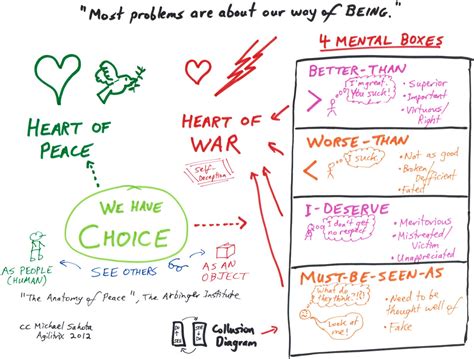 "Most problems are about our way of BEING."
4 MENTAL BOXES
HEART OF
PEACE
HEART OF
WAR
Self-
Deception
WE HAVE
CHOICE
SEE OTHERS
AS PEOPLE
(HUMAN)
AS AN
OBJECT
"The Anatomy of Peace", The Arbinger Institute
cc Michael Sahota
Agilitrix 2012
Collusion
Diagram
BETTER-THAN
I'm great.
You suck!
• Superior
• Important
• Virtuous/
Right
WORSE-THAN
I suck.
• Not as good
• Broken
Deficient
• Fated
I-DESERVE
I don't get
no respect
• Meritorious
• Mistreated/
Victim
• Unappreciated
MUST-BE-SEEN-AS
What do
they think?!
Look at
me!
• Need to be
thought well of
• Fake